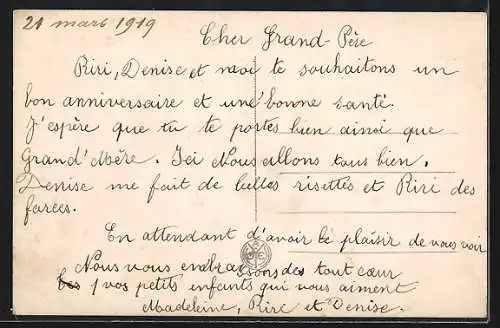 21 mars 1919
Cher Grand-Père
Riri, Denise et moi te souhaitons un
bon anniversaire et une bonne santé.
J'espère que tu te portes bien ainsi que
Grand'Mère. Ici Nous allons tous bien.
Denise me fait de belles risettes et Riri des
farces.
En attendant d'avoir le plaisir de vous voir
Nous vous embrassons de tout cœur
vos petits enfants qui vous aiment
Madeleine, Riri et Denise.